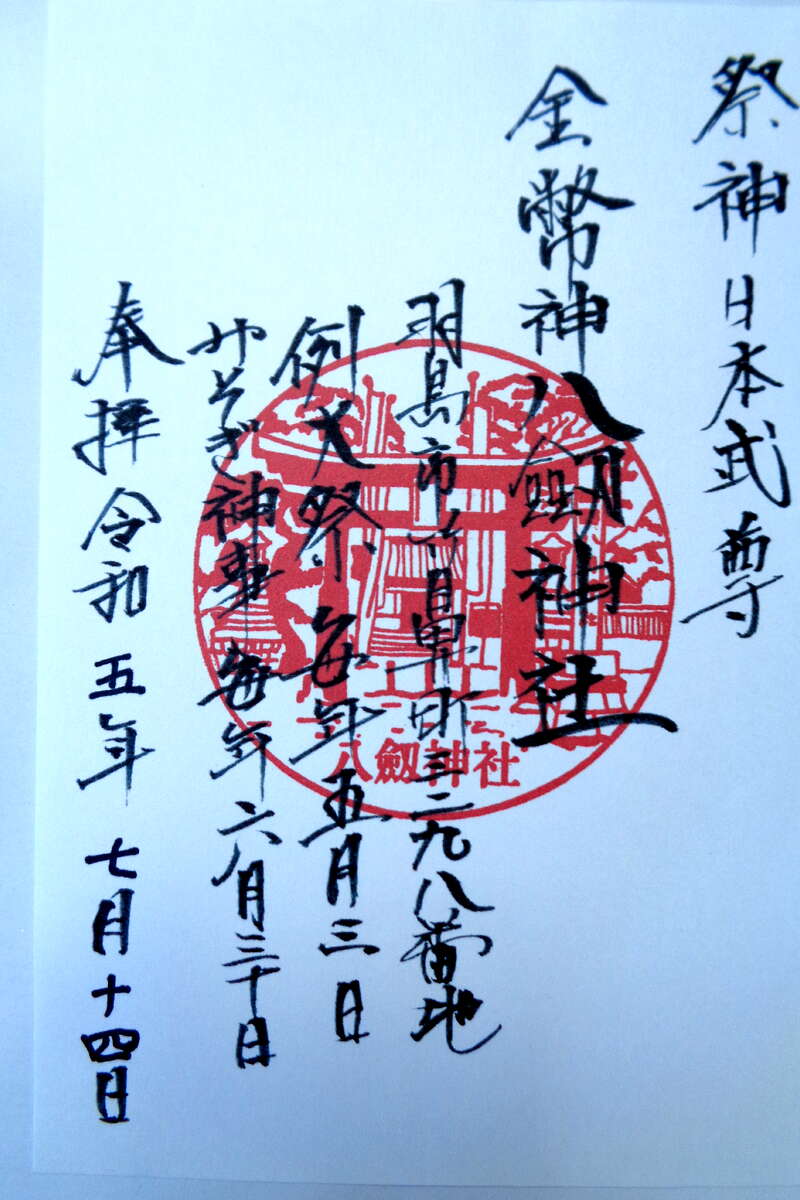 祭神日本武尊
金幣神八劔神社
羽島市竹鼻町三二九八番地
例大祭 毎年五月三日
みそぎ神事 毎年六月三十日
奉拝 令和五年七月十四日
八劔神社